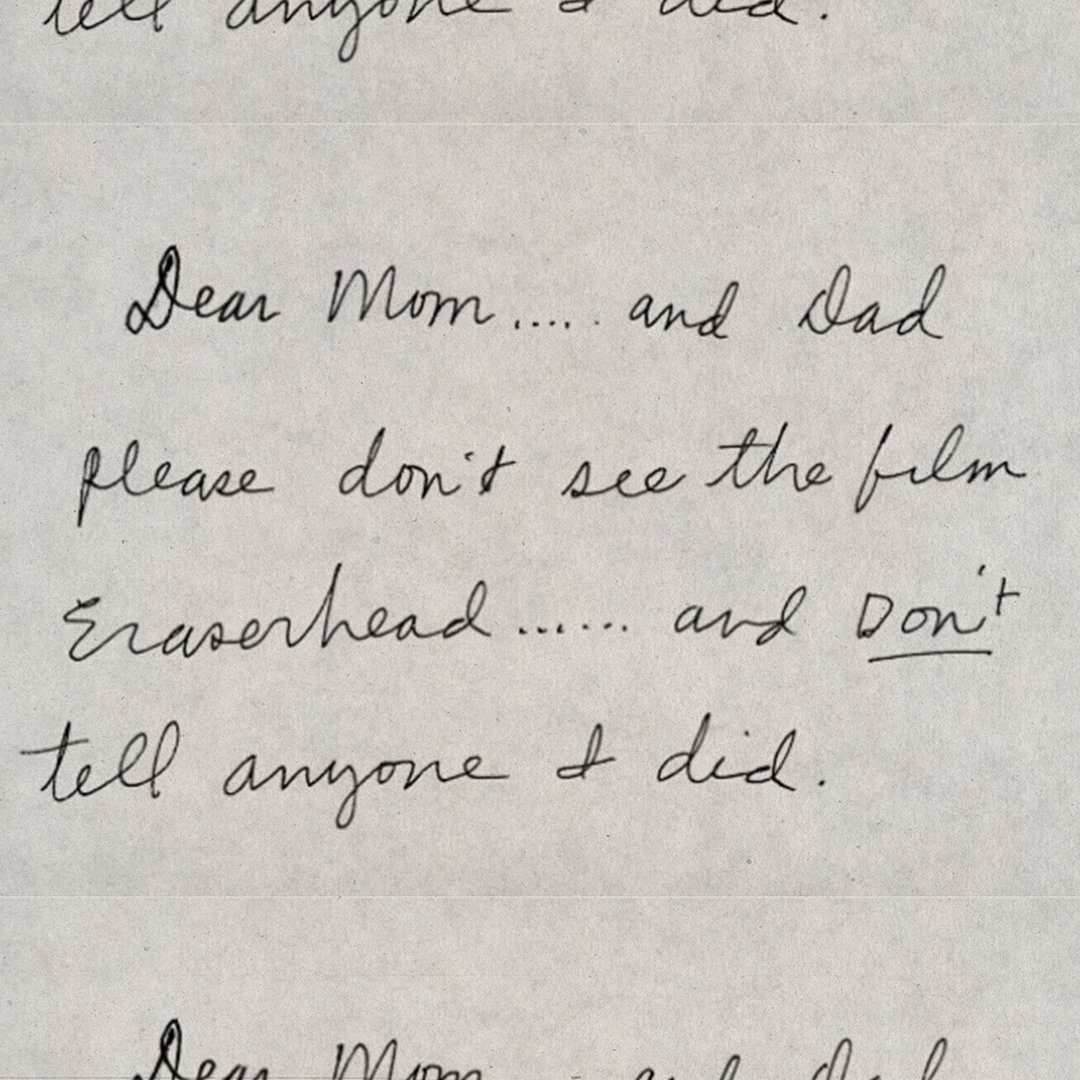 tell anyone I did.
Dear Mom..... and Dad
please don't see the film
Eraserhead...... and Don't
tell anyone I did.
Dear Mom and Dad